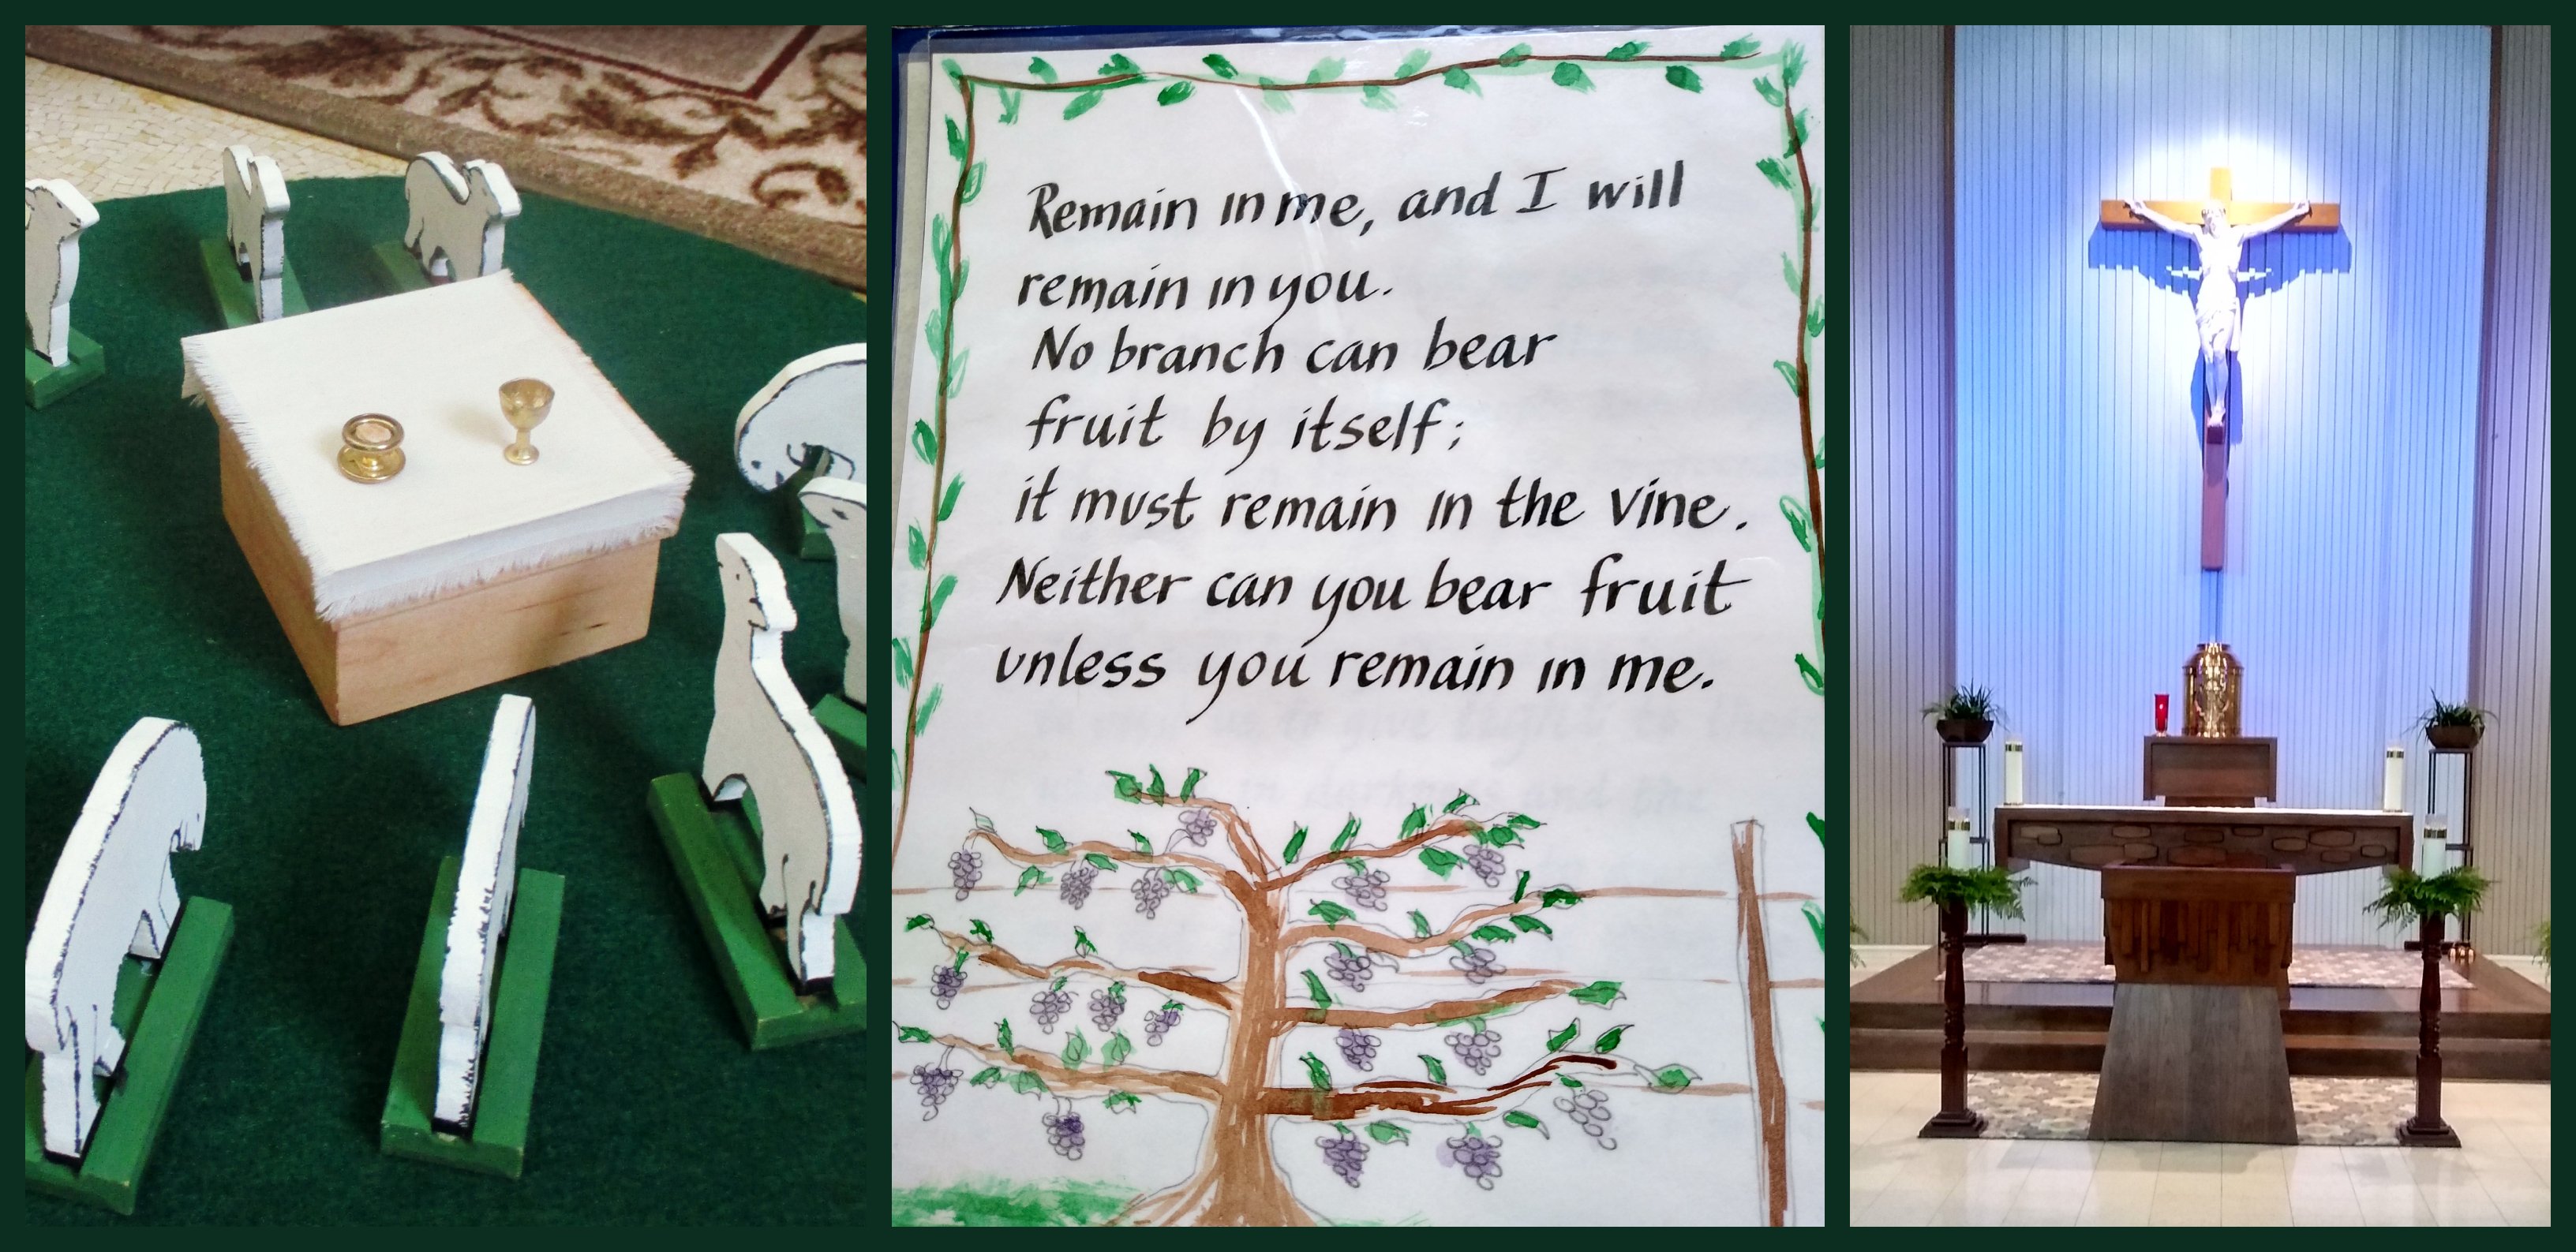 Remain in me, and I will
remain in you.
No branch can bear
fruit by itself;
it must remain in the vine.
Neither can you bear fruit
unless you remain in me.